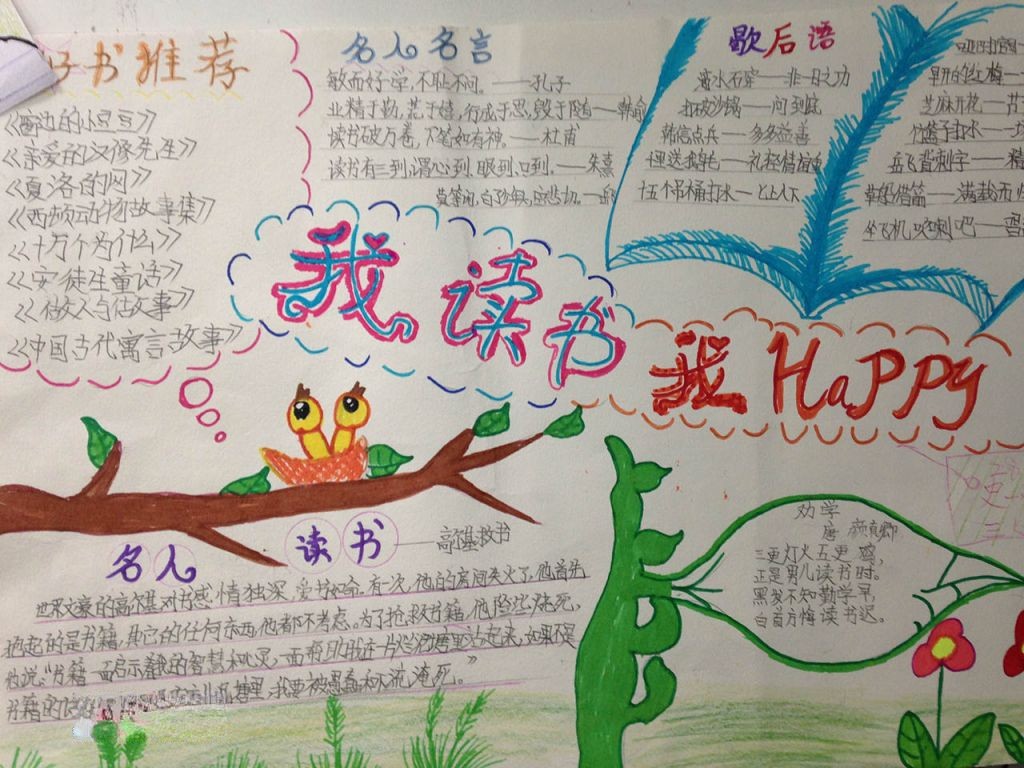 好书推荐
《窗边的小豆豆》
《亲爱的汉修先生》
《夏洛的网》
《西顿动物故事集》
《十万个为什么》
《安徒生童话》
《做人与做事》
《中国古代寓言故事》
名人名言
敏而好学,不耻下问。——孔子
业精于勤,荒于嬉,行成于思,毁于随——韩愈
读书破万卷,下笔如有神。——杜甫
读书有三到,谓心到,眼到,口到。——朱熹
歇后语
滴水石穿——非一日之功
打破沙锅——问到底
韩信点兵——多多益善
千里送鹅毛——礼轻情意重
十五个吊桶打水—七上八下
芝麻开花——节
竹篮子打水—
岳飞背刺字——精
草船借箭——满载而归
坐飞机吹喇吧——
我读书
我 Happy
名人读书——高尔基救书
世界文豪的高尔基对书感情独深,爱书如命。有一次,他的房间失火了,他首先
抱起的是书籍,其它的任何东西,他都不考虑。为了抢救书籍,他险些烧死,
他说:"书籍一面启示着我的智慧和心灵,一面帮助我在一片烂泥塘里站起来,如果不是
书籍的话 我要被愚蠢和下流淹死。"
劝学
唐 颜真卿
三更灯火五更鸡,
正是男儿读书时。
黑发不知勤学早,
白首方悔读书迟。